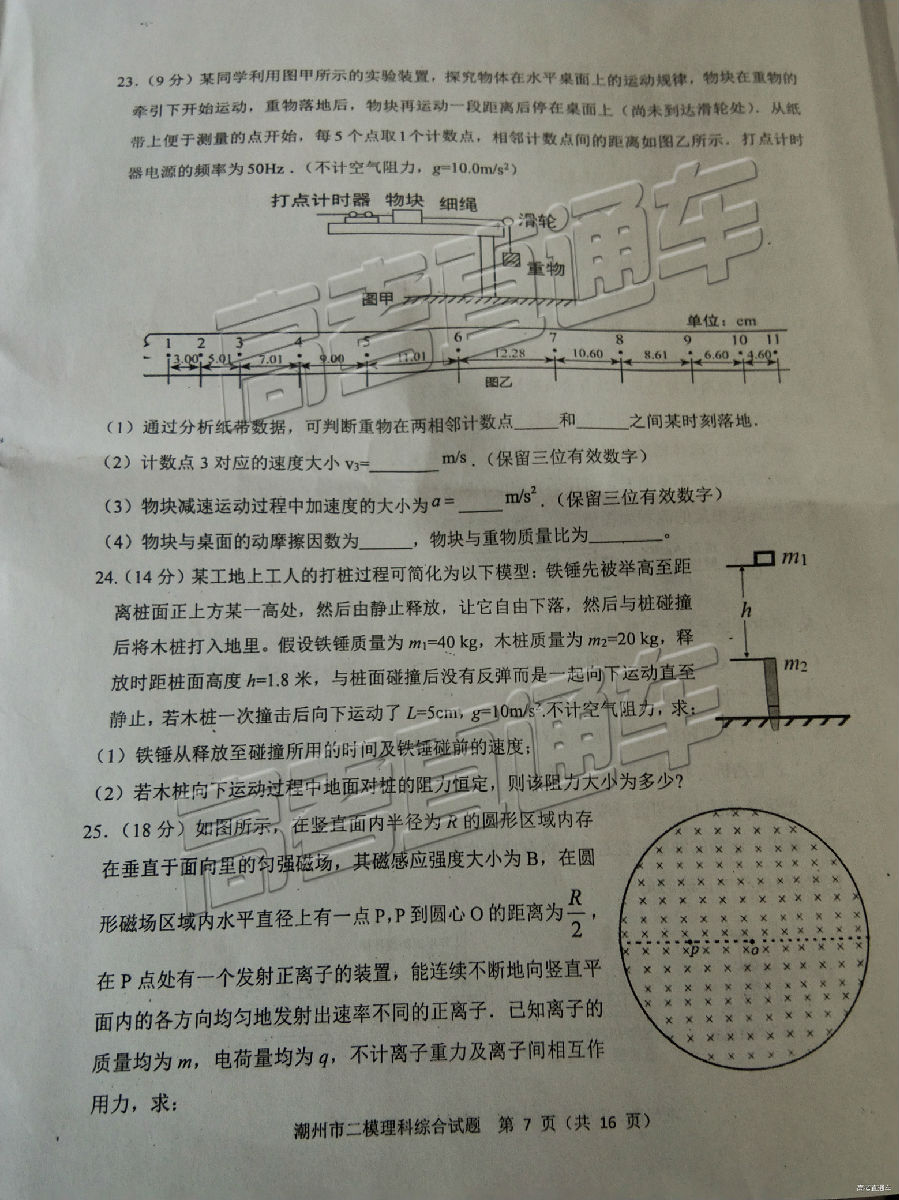 23．（9 分）某同学利用图甲所示的实验装置，探究物体在水平桌面上的运动规律，物块在重物的
牵引下开始运动，重物落地后，物块再运动一段距离后停在桌面上（尚未到达滑轮处）．从纸
带上便于测量的点开始，每 5 个点取1个计数点，相邻计数点间的距离如图乙所示．打点计时
器电源的频率为 50Hz．（不计空气阻力，g=10.0m/s²）
打点计时器 物块 细绳
滑轮
重物
图甲
单位：cm
1 2 3 4 5 6 7 8 9 10 11
3.00 5.01 7.01 9.00 11.01 12.28 10.60 8.61 6.60 4.60
图乙
（1）通过分析纸带数据，可判断重物在两相邻计数点_____和______之间某时刻落地．
（2）计数点 3 对应的速度大小 v₃=________ m/s．（保留三位有效数字）
（3）物块减速运动过程中加速度的大小为 a = _____ m/s²．（保留三位有效数字）
（4）物块与桌面的动摩擦因数为______，物块与重物质量比为________。
24.（14 分）某工地上工人的打桩过程可简化为以下模型：铁锤先被举高至距
离桩面正上方某一高处，然后由静止释放，让它自由下落，然后与桩碰撞
后将木桩打入地里。假设铁锤质量为 m₁=40 kg，木桩质量为 m₂=20 kg，释
放时距桩面高度 h=1.8 米，与桩面碰撞后没有反弹而是一起向下运动直至
静止，若木桩一次撞击后向下运动了 L=5cm，g=10m/s².不计空气阻力，求：
m₁
h
m₂
（1）铁锤从释放至碰撞所用的时间及铁锤碰前的速度；
（2）若木桩向下运动过程中地面对桩的阻力恒定，则该阻力大小为多少？
25．（18 分）如图所示，在竖直面内半径为 R 的圆形区域内存
在垂直于面向里的匀强磁场，其磁感应强度大小为 B，在圆
形磁场区域内水平直径上有一点 P，P 到圆心 O 的距离为 R/2，
在 P 点处有一个发射正离子的装置，能连续不断地向竖直平
面内的各方向均匀地发射出速率不同的正离子．已知离子的
质量均为 m，电荷量均为 q，不计离子重力及离子间相互作
用力，求：
p o
潮州市二模理科综合试题 第 7 页（共 16 页）
高考直通车
高考直通车
高考直通车